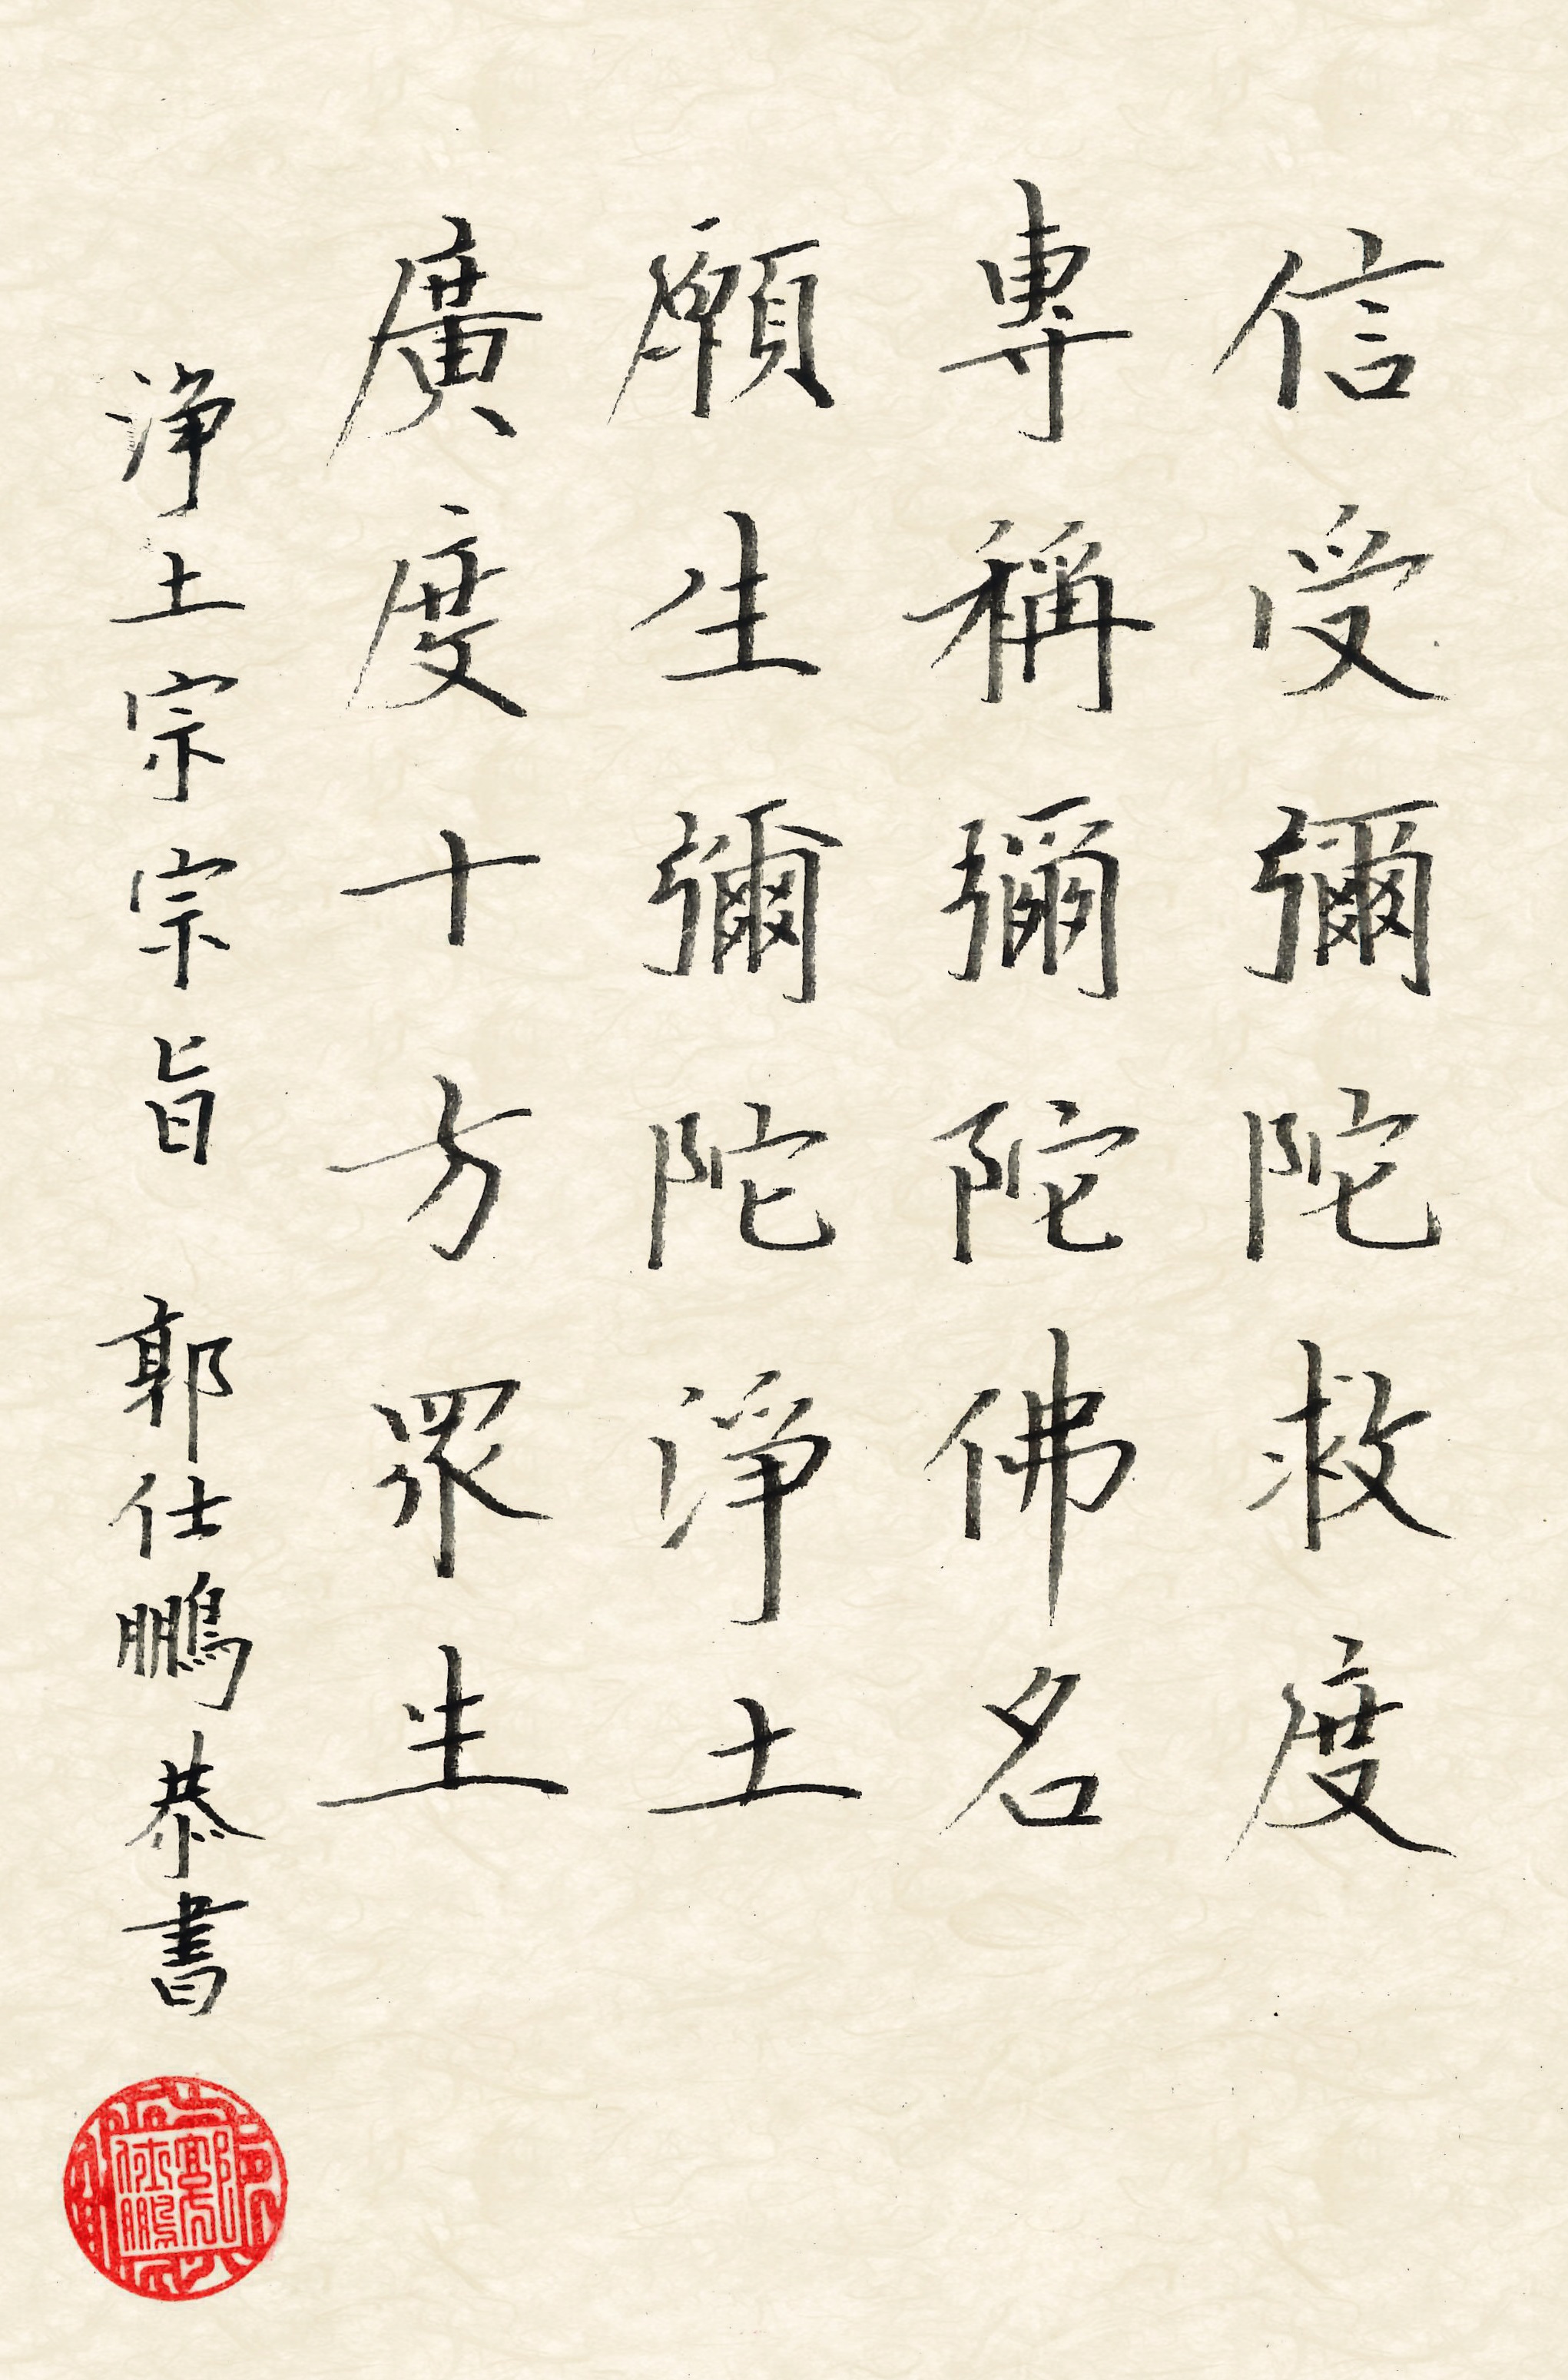 信受彌陀救度
專稱彌陀佛名
願生彌陀淨土
廣度十方眾生
淨土宗宗旨 郭仕鵬恭書